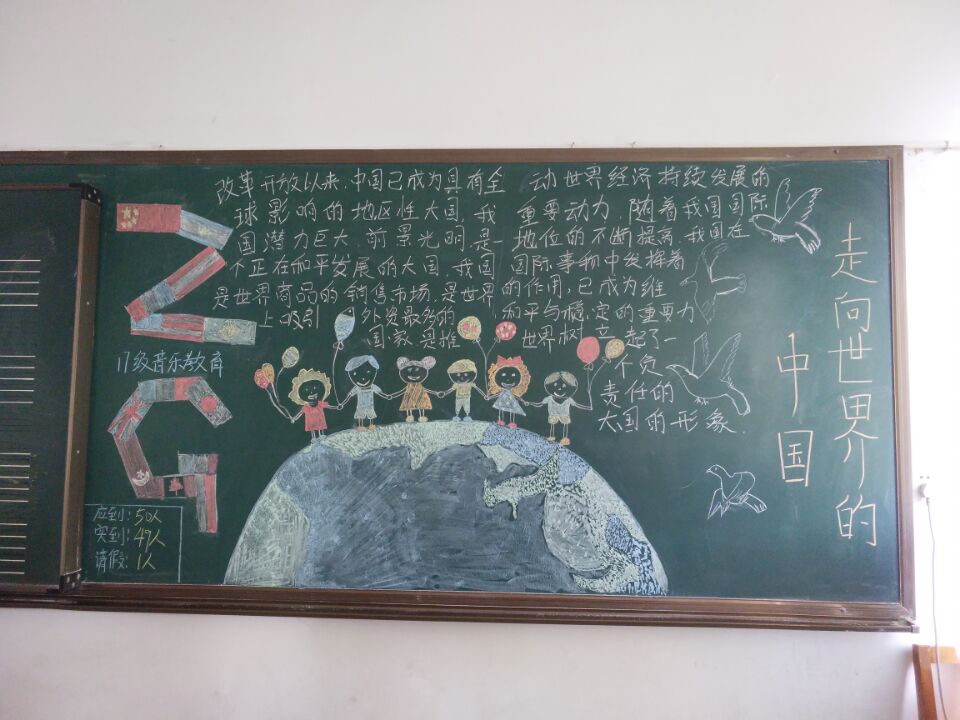 走向世界的
中国
改革开放以来,中国已成为具有全
球影响的地区性大国,我
国潜力巨大,前景光明,是一
个正在和平发展的大国,我国
是世界商品的销售市场,是世界
上吸引外资最多的
国教是推
动世界经济持续发展的
重要动力,随着我国国际
地位的不断提高,我国在
国际事物中发挥着
的作用,已成为维
和平与稳定的重要力
世界树立起了一
个负
责任的
大国的形象.
ZG
17级音乐教育
应到:50人
实到:49人
请假:1人